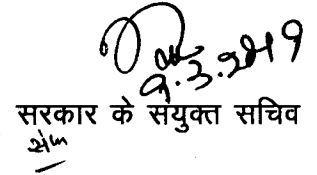 9.3.2019
सरकार के संयुक्त सचिव